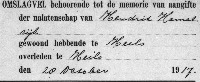 OMSLAGVEL behoorende tot de memorie van aangifte
der nalatenschap van Hendrik Hamel
gewoond hebbende te Heils
overleden te Heils
den 20 October 1917.